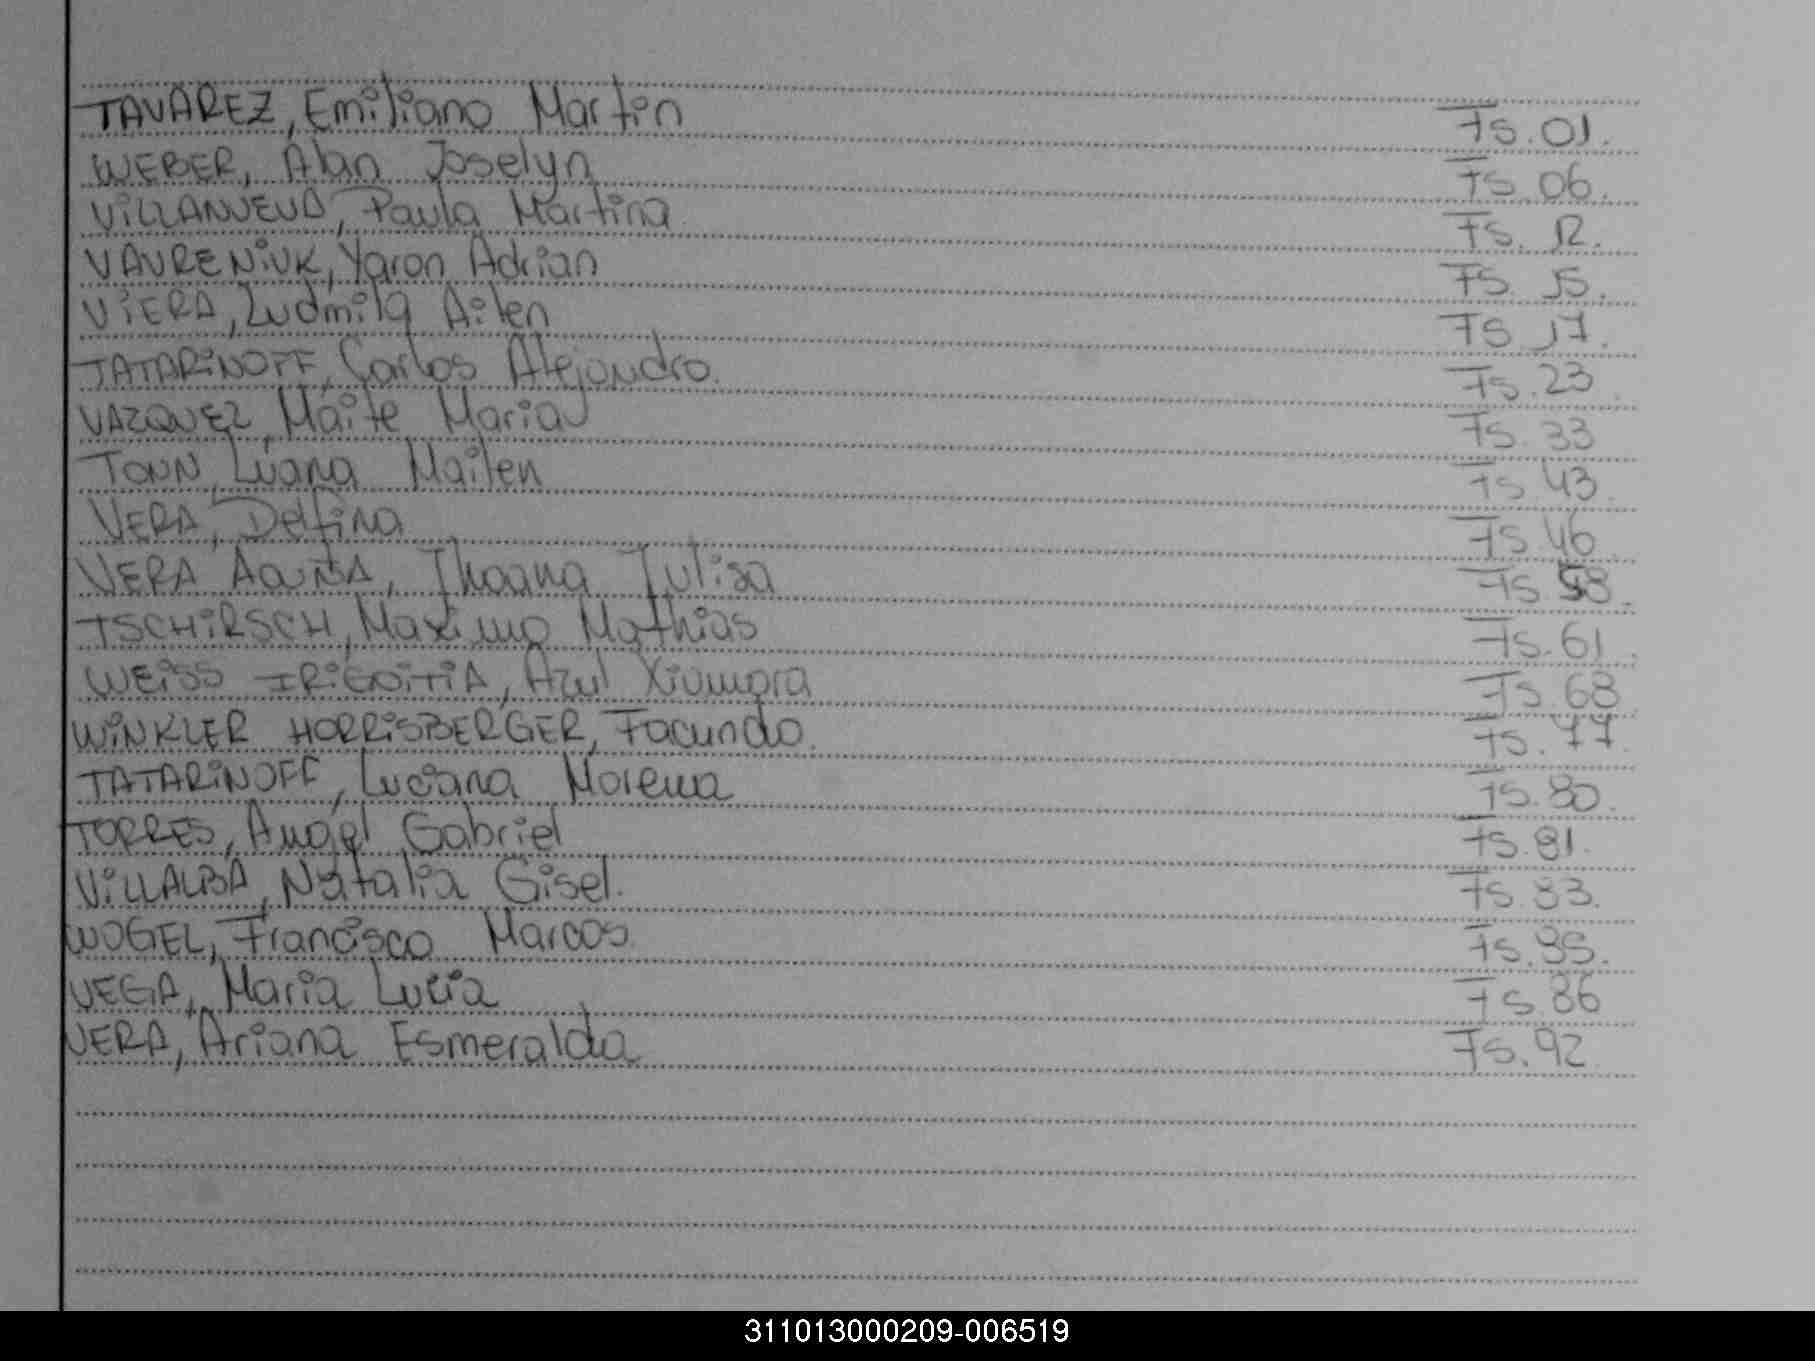 TAVAREZ, Emiliano Martin Fs. 01.
WEBER, Alan Joselyn Fs. 06.
ViLLANUEVA, Paula Martina Fs. 12.
VAVRENiUK, Yaron Adrian Fs. 15.
ViERA, Ludmila Ailen Fs. 17.
TATARiNOFF, Carlos Alejandro. Fs. 23.
VAZQUEZ, Maite Maria Fs. 33
TONN, Luana Mailen Fs. 43.
VERA, Delfina Fs. 46.
VERA ACUÑA, Jhoana Julisa Fs. 58.
TSCHiRSCH, Maximo Mathias Fs. 61.
WEiSS IRiGOiTiA, Azul Xiumara Fs. 68
WiNKLER HORRiSBERGER, Facundo. Fs. 77.
TATARiNOFF, Luciana Morena Fs. 80.
TORRES, Angel Gabriel Fs. 81.
ViLLALBA, Natalia Gisel. Fs. 83.
WOGEL, Francisco Marcos. Fs. 85.
VEGA, Maria Lucia Fs. 86
VERA, Ariana Esmeralda Fs. 92.
311013000209-006519